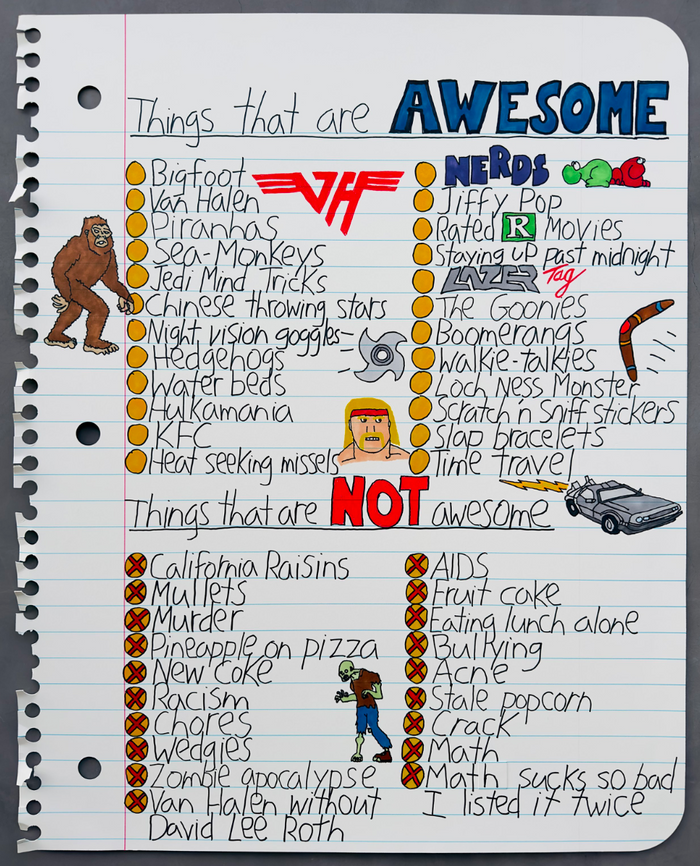 Things that are AWESOME
Bigfoot
Van Halen
VH
Piranhas
Sea-Monkeys
Jedi Mind Tricks
Chinese throwing stars
Night vision goggles
Hedgehogs
Water beds
Hulkamania
KFC
Heat seeking missels
NERDS
Jiffy Pop
Rated R Movies
Staying up past midnight
LAZER Tag
The Goonies
Boomerangs
Walkie-talkies
Loch Ness Monster
Scratch n Sniff stickers
Slap bracelets
Time travel
Things that are NOT awesome
California Raisins
Mullets
Murder
Pineapple on pizza
New Coke
Racism
Chores
Wedgies
Zombie apocalypse
Van Halen without
David Lee Roth
AIDS
Fruit cake
Eating lunch alone
Bullying
Acne
Stale popcorn
Crack
Math
Math sucks so bad
I listed it twice